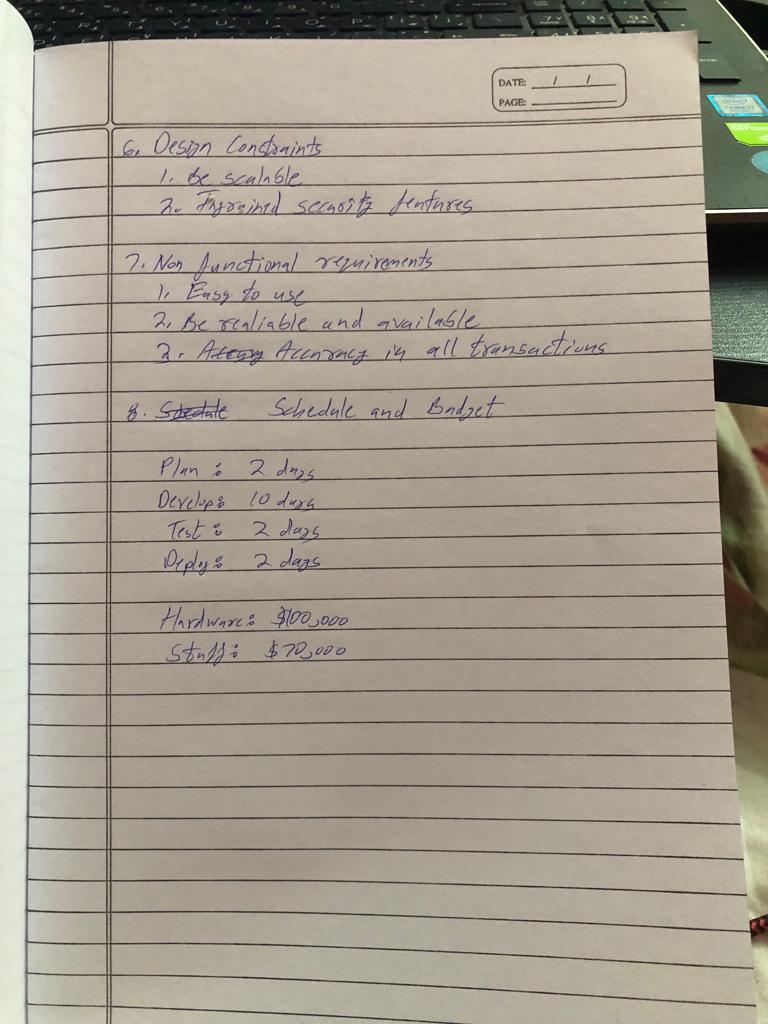 DATE: / /
PAGE:
6. Design Constraints
1. Be scalable
2. Ingrained security features
7. Non functional requirements
1. Easy to use
2. Be realiable and available
3. Accuracy in all transactions
8. Schedule Schedule and Budget
Plan: 2 days
Develop: 10 days
Test: 2 days
Deploy: 2 days
Hardware: $100,000
Staff: $70,000